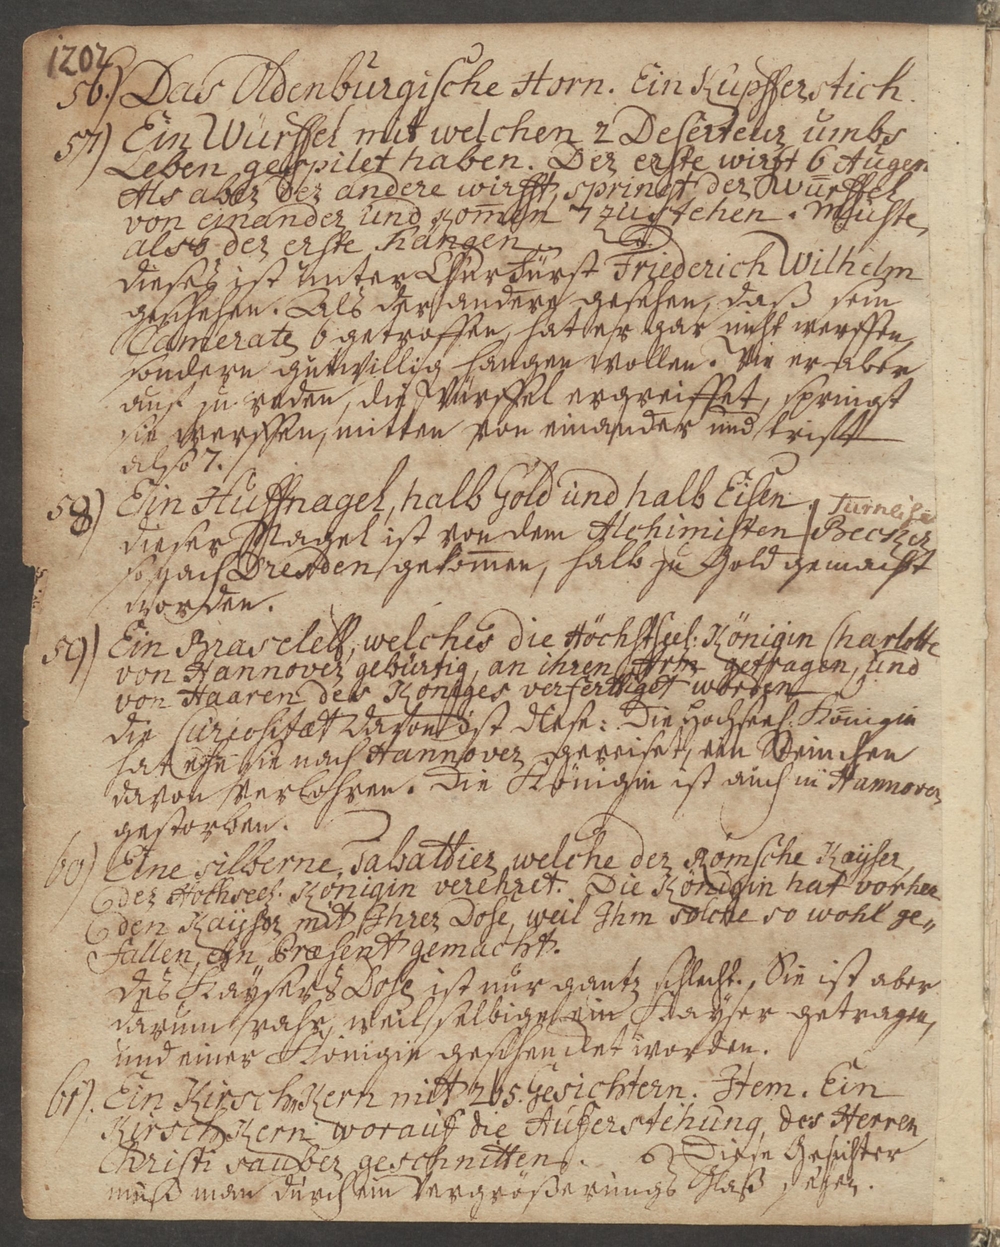 1202
56.) Das Oldenburgische Horn. Ein Kupfferstich.
57) Ein Würffel mit welchen 2 Deserteur umbs
Leben gespilet haben. Der erste wirft 6 Augen
Als aber der andere wirfft, springt der Würffel
von einander und kom̄en 7 zustehen. Muste,
also der erste hangen.
dieses ist unter ChurFürst Friederich Wilhelm
geschehen. Als der andere gesehen, daß sein
Camerate 6 getroffen, hat er gar nicht werffen,
sondern gutwillig hangen wollen. Wie er aber
auf zu reden, die Würffel ergreiffet, springt
sie werffen, mitten von einander und trifft
also 7.
58) Ein Huffnagel, halb Gold und halb Eisen.
Turneiser
dieser Nagel ist von dem Alchimisten Becker
so nach Dresden gekom̄en, halb zu Gold gemacht
worden.
59) Ein Braselett, welches die Höchstseel: Königin Charlotte
von Hannover gebürtig, an ihren Arm getragen, und
von Haaren des Königes verfertiget worden
die Curiositæt davon ist diese: Die Hochseel: Königin
hat ehe sie nach Hannover gereiset, ein Steinchen
davon verlohren. Die Königin ist auch in Hannover
gestorben.
60) Eine silberne Tabathier, welche der Römsche Kaÿser,
der Hochseel: Königin verehret. Die Königin hat vorher
den Kaÿser mit Ihrer Dose, weil Ihm solche so wohl ge„
fallen, ein Præsent gemacht.
des Kaÿsers Dose ist nur gantz schlecht. Sie ist aber
darum rahr, weil selbige ein Kaÿser getragen,
und einer Königin geschencket worden.
61). Ein Kirsch Kern mit 205. Gesichtern. Item. Ein
Kirsch Kern worauf die Aufferstehung des Herren
Christi sauber geschnitten. Diese Gesichter
muß man durch ein Vergrößerungs Glaß sehen.